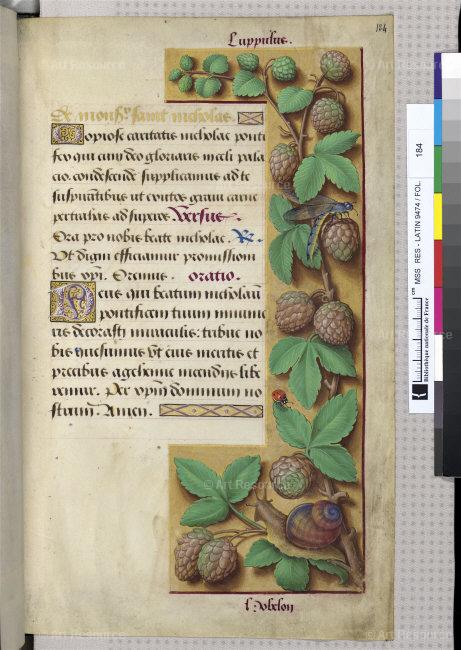 Luppulus.
184
De mons.r saint nicholas.
Copiose caritatis nicholae ponti
fex qui cum deo gloriaris in celi pala
cio. condescende supplicamus ad te
suspirantibus ut
ad superos Versus.
Ora pro nobis beate nicholae. R.
Ut digni efficiamur promissioni
bus xpi. Oremus. oratio.
Deus qui beatum nicholaum
pontificem tuum innume
ris decorasti miraculis: tribue no
bis quesumus ut eius meritis et
precibus a gehenne incendijs libe
remur. Per xpm dominum no
strum. Amen.
l. Obelon
184
MSS RES - LATIN 9474 / FOL.
cm
Bibliothèque nationale de France
© Art Resource
© Art Resource
© Art Resource
© Art Resource